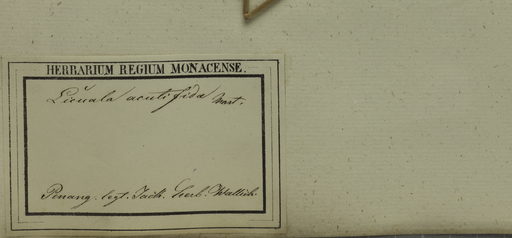 HERBARIUM REGIUM MONACENSE.
Licuala acutifida Mart.
Penang. legt. Jack. herb. Wallich.